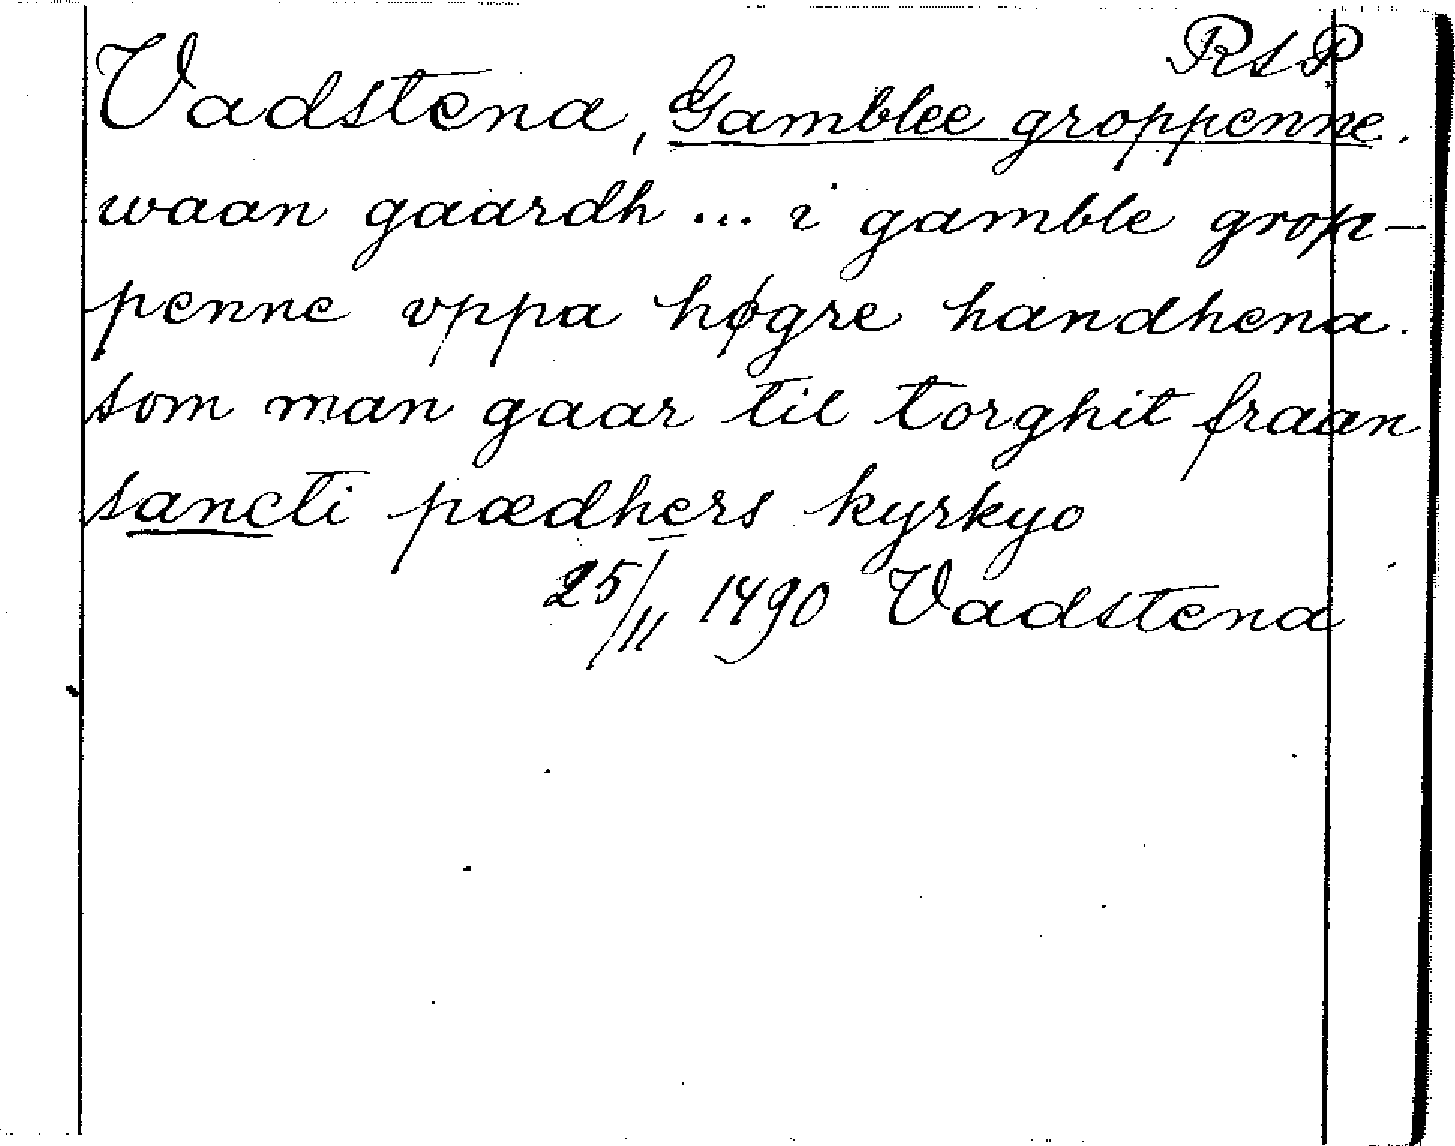 RAP
Vadstena, Gamblee groppenne.
waan gaardh ... i gamble grop-
penne vppa høgre handhena.
som man gaar til torghit fraan
sancti pædhers kyrkyo
25/11 1490 Vadstena